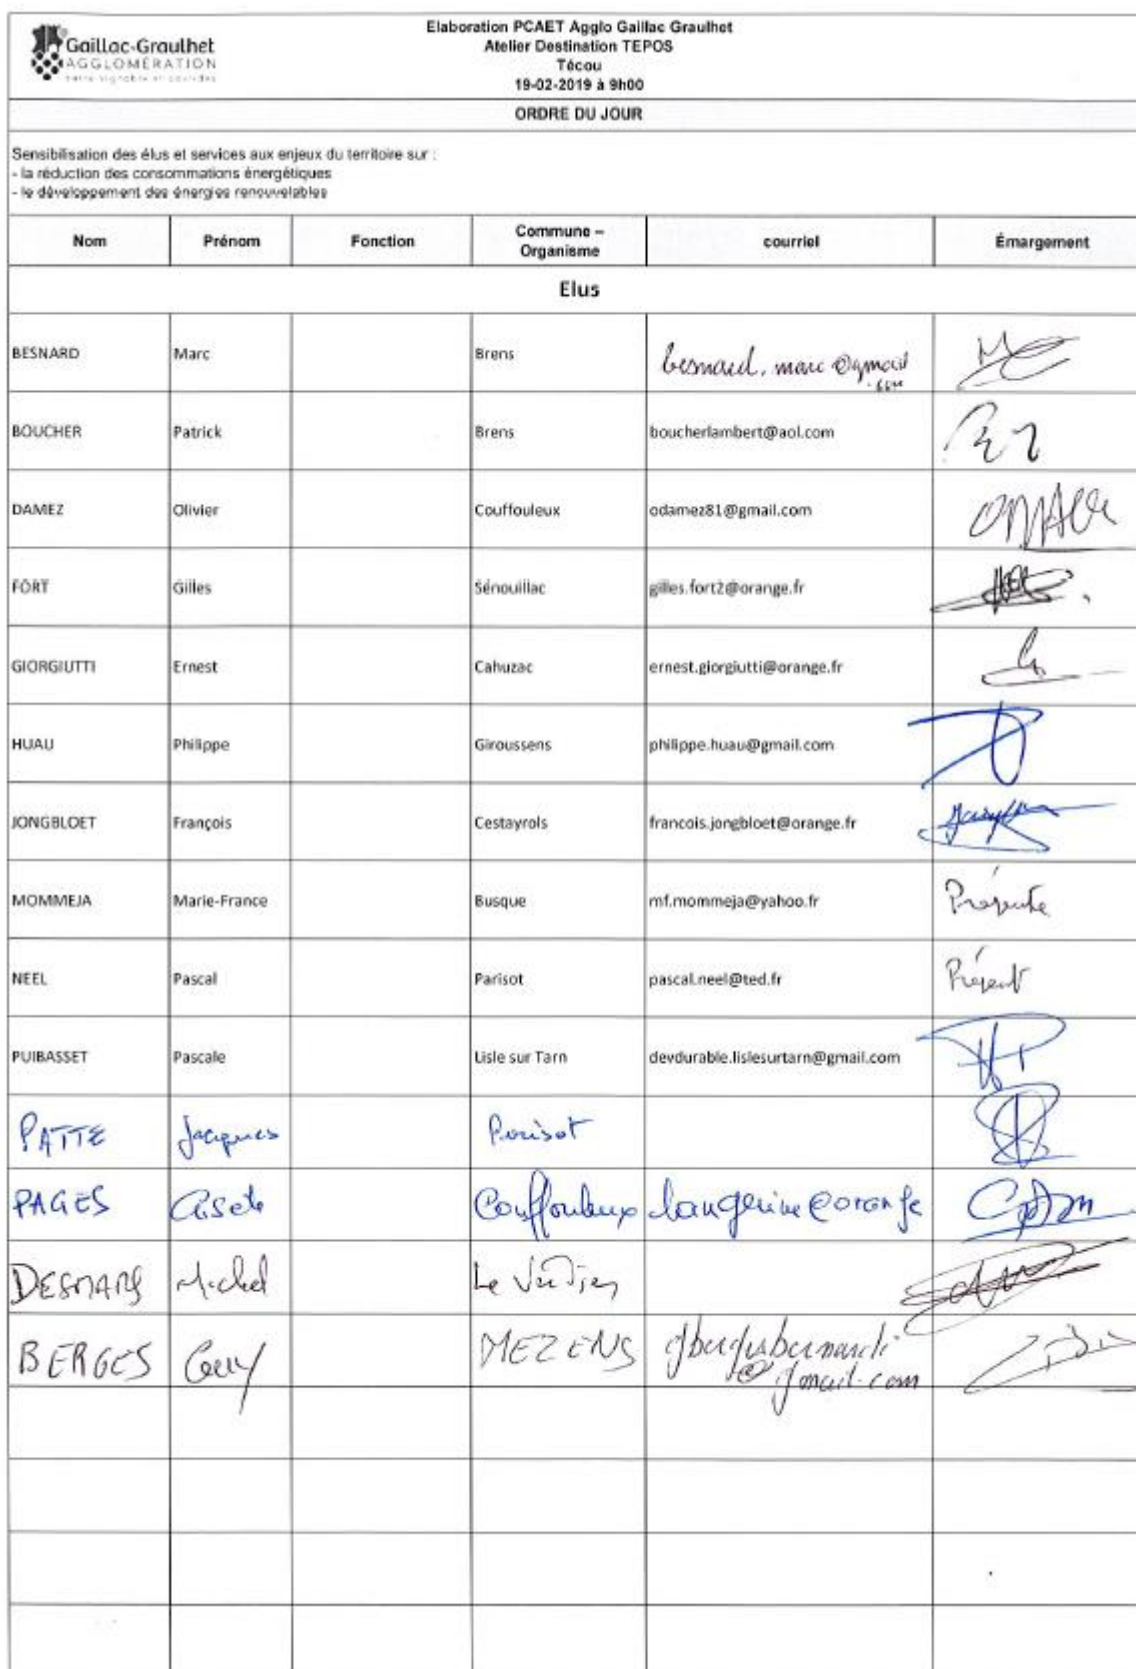 Gaillac-Graulhet
AGGLOMÉRATION
Elaboration PCAET Agglo Gaillac Graulhet
Atelier Destination TEPOS
Técou
19-02-2019 à 9h00
ORDRE DU JOUR
Sensibilisation des élus et services aux enjeux du territoire sur :
- la réduction des consommations énergétiques
- le développement des énergies renouvelables
Nom Prénom Fonction Commune – Organisme courriel Émargement
Elus
BESNARD Marc Brens besnard.marc@gmail.com
BOUCHER Patrick Brens boucherlambert@aol.com
DAMEZ Olivier Couffouleux odamez81@gmail.com
FORT Gilles Sénouillac gilles.fort2@orange.fr
GIORGIUTTI Ernest Cahuzac ernest.giorgiutti@orange.fr
HUAU Philippe Giroussens philippe.huau@gmail.com
JONGBLOET François Cestayrols francois.jongbloet@orange.fr
MOMMEJA Marie-France Busque mf.mommeja@yahoo.fr Présente
NEEL Pascal Parisot pascal.neel@ted.fr Présent
PUIBASSET Pascale Lisle sur Tarn devdurable.lislesurtarn@gmail.com
PATTE Jacques Parisot
PAGES Couffouleux
DESMARS Michel Le
BERGES Guy MEZENS @gmail.com